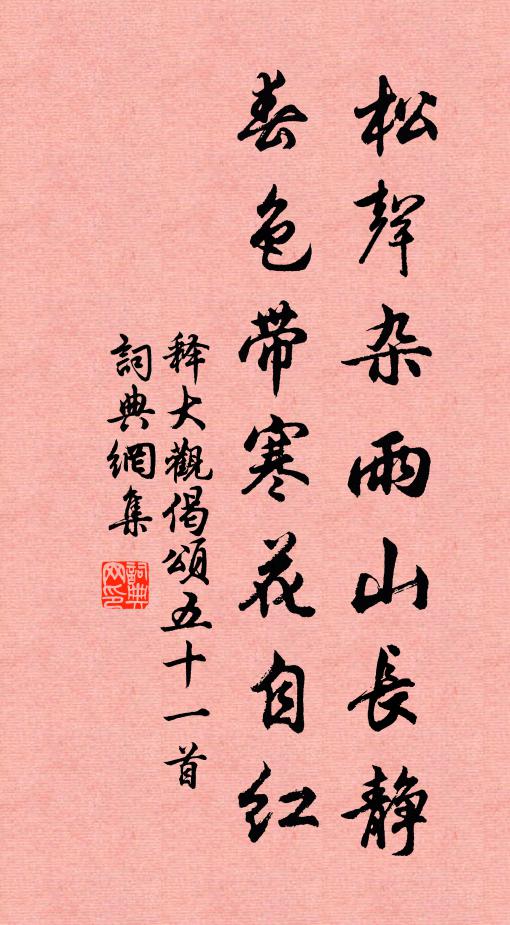 松聲杂雨山長静
春色带寒花自红
释大觀偈頌五十一首
詞典網集
詞典网印